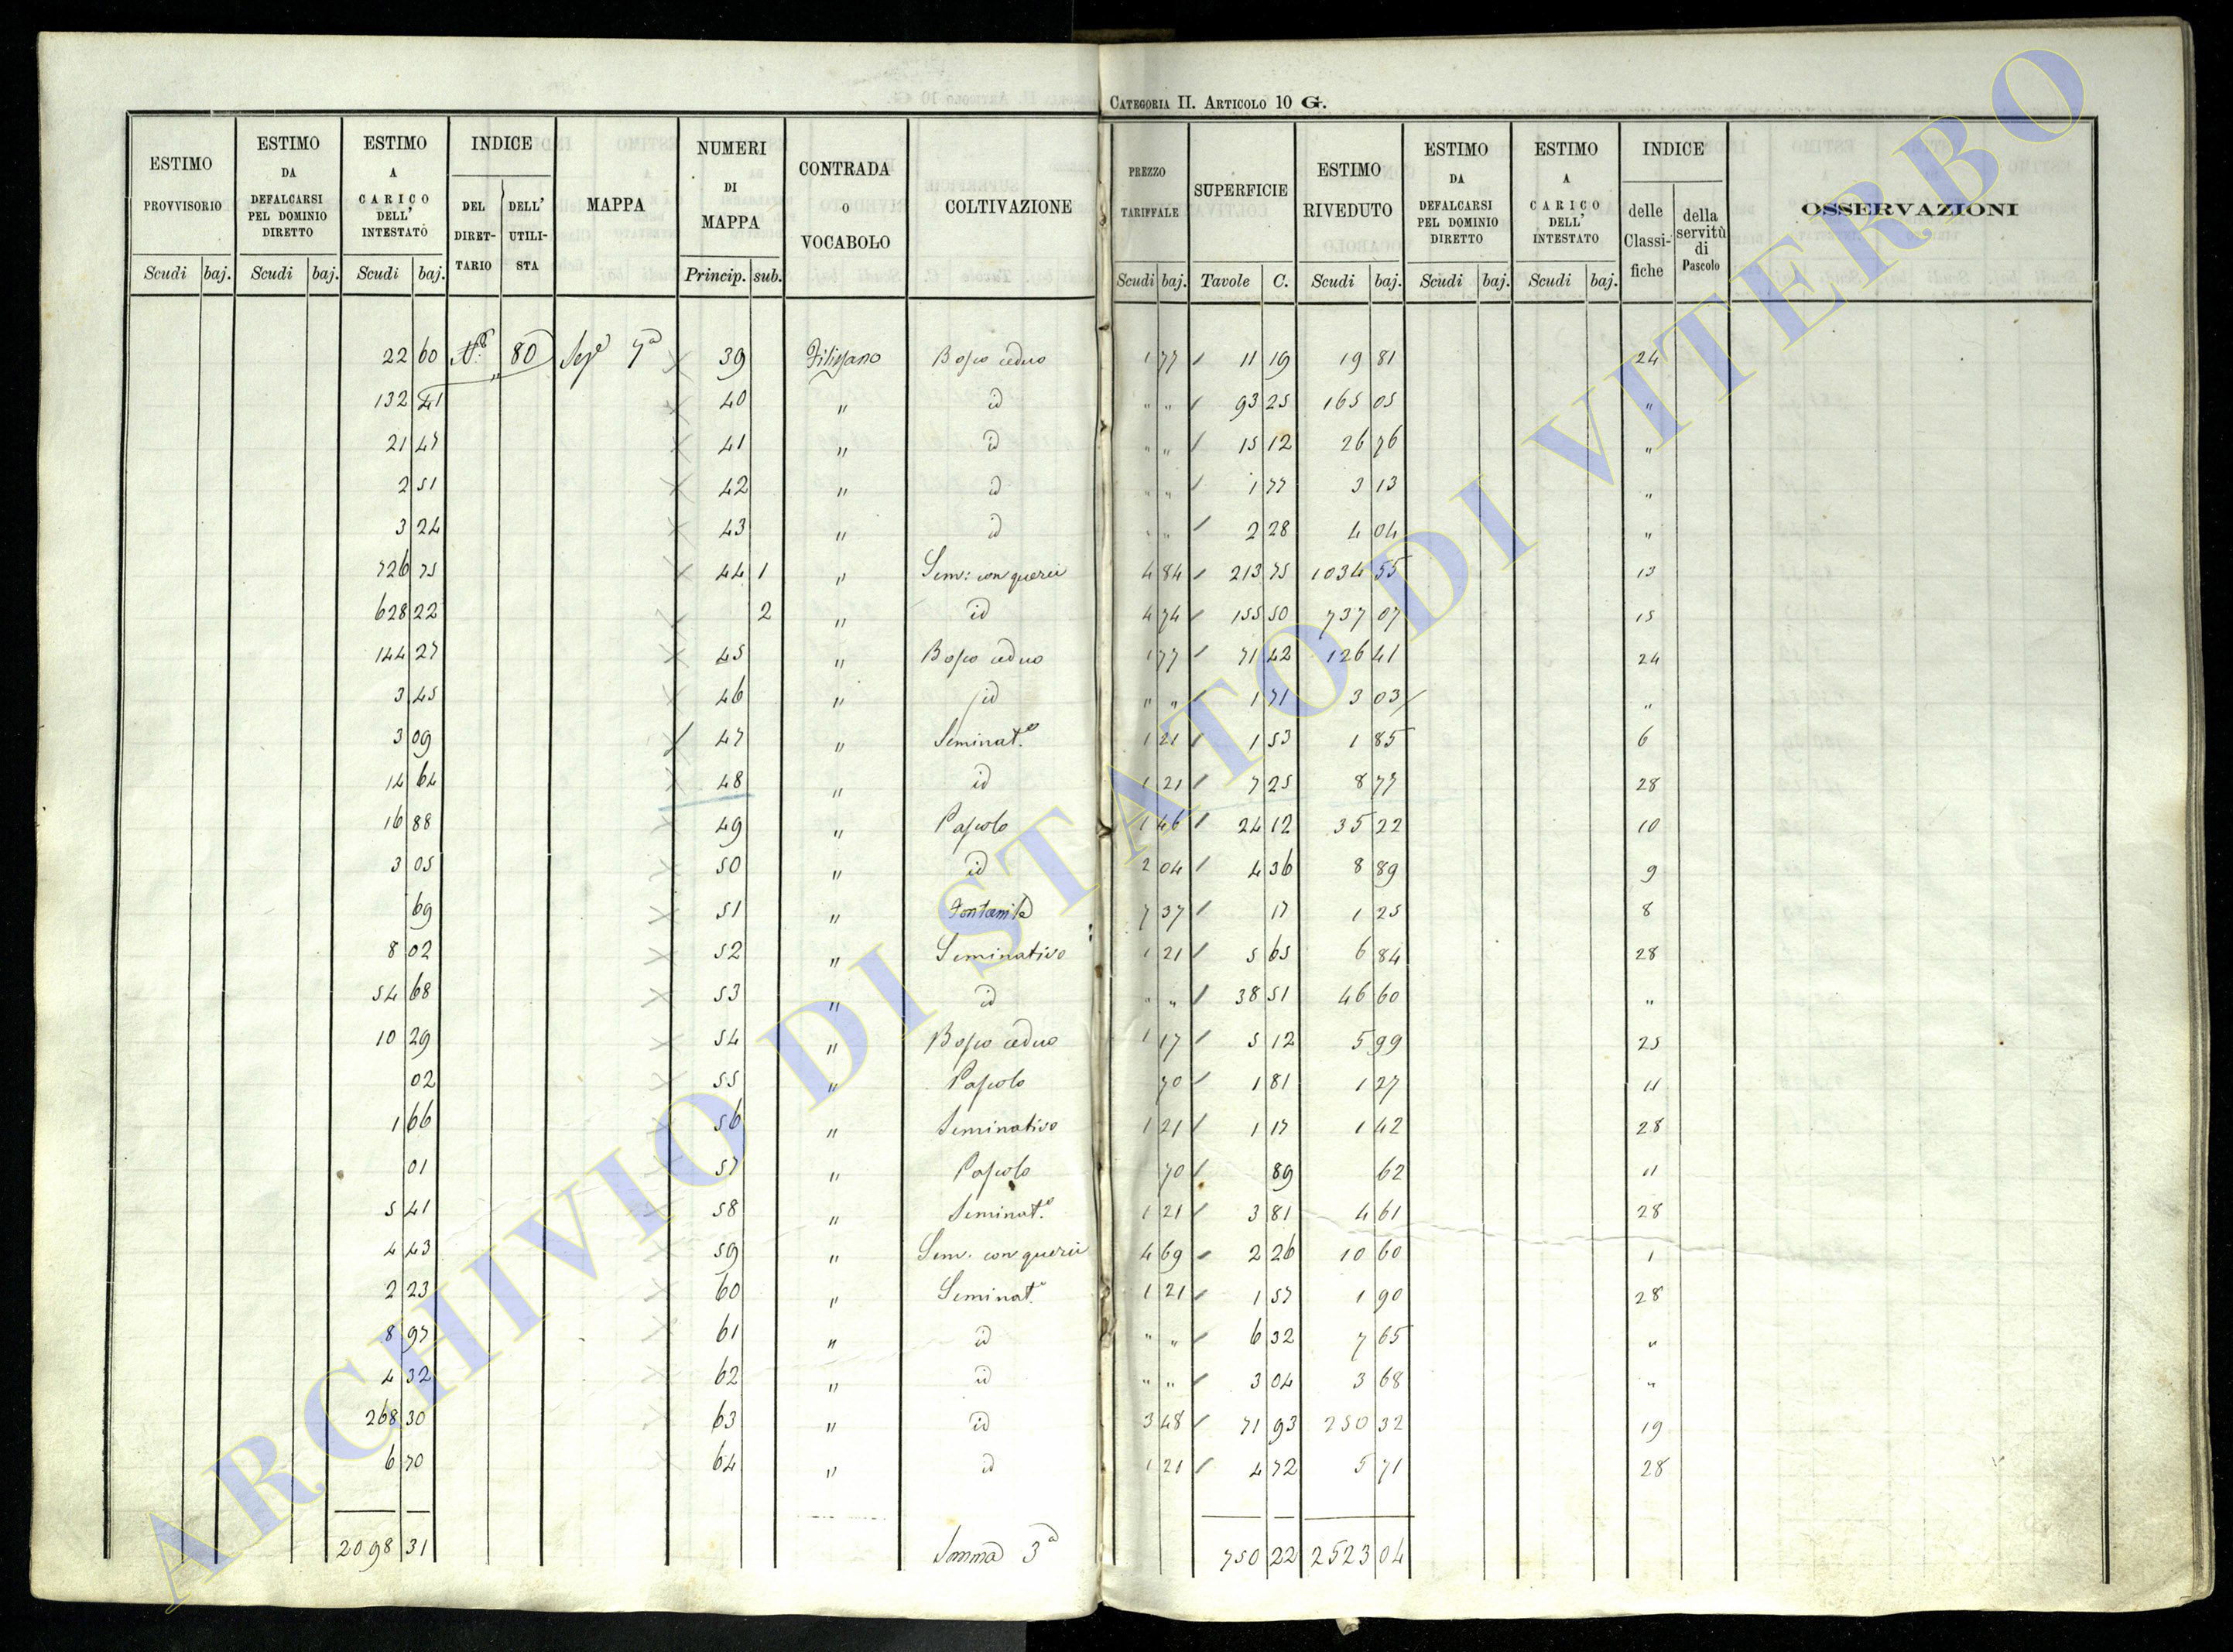 CATEGORIA II. ARTICOLO 10 G.
ESTIMO PROVVISORIO Scudi baj.
ESTIMO DA DEFALCARSI PEL DOMINIO DIRETTO Scudi baj.
ESTIMO A CARICO DELL' INTESTATO Scudi baj.
INDICE DEL DIRETTARIO DELL' UTILISTA
MAPPA
NUMERI DI MAPPA Princip. sub.
CONTRADA O VOCABOLO
COLTIVAZIONE
PREZZO TARIFFALE Scudi baj.
SUPERFICIE Tavole C.
ESTIMO RIVEDUTO Scudi baj.
ESTIMO DA DEFALCARSI PEL DOMINIO DIRETTO Scudi baj.
ESTIMO A CARICO DELL' INTESTATO Scudi baj.
INDICE delle Classifiche della servitù di Pascolo
OSSERVAZIONI
22 60 80 7a 39 Bosco ceduo 1 77 11 19 19 81 24
132 41 40 " id " " 93 25 165 05 "
21 47 41 " id " " 15 12 26 76 "
2 51 42 " id " " 1 77 3 13 "
3 24 43 " id " " 2 28 4 04 "
726 75 44 1 " Sem: con querci 4 84 213 75 1034 55 13
628 22 2 " id 4 74 155 50 737 07 15
144 27 45 " Bosco ceduo 1 77 71 42 126 41 24
3 45 46 " id " " 1 71 3 03 "
3 09 47 " Seminat.o 1 21 1 53 1 85 6
14 64 48 " id 1 21 7 25 8 77 28
16 88 49 " Pascolo 1 46 24 12 35 22 10
3 05 50 " id 2 04 4 36 8 89 9
69 51 " Fontanile 7 37 17 1 25 8
8 02 52 " Seminativo 1 21 5 65 6 84 28
54 68 53 " id " " 38 51 46 60 "
10 29 54 " Bosco ceduo 1 17 5 12 5 99 25
02 55 " Pascolo 70 1 81 1 27 11
1 66 56 " Seminativo 1 21 1 17 1 42 28
01 57 " Pascolo 70 89 62 11
5 41 58 " Seminat.o 1 21 3 81 4 61 28
4 43 59 " Sem. con querci 4 69 2 26 10 60 1
2 23 60 " Seminat.o 1 21 1 57 1 90 28
8 97 61 " id " " 6 32 7 65 "
4 32 62 " id " " 3 04 3 68 "
268 30 63 " id 3 48 71 93 250 32 19
6 70 64 " id 1 21 4 72 5 71 28
2098 31 Somma 3a 750 22 2523 04
ARCHIVIO DI STATO DI VITERBO